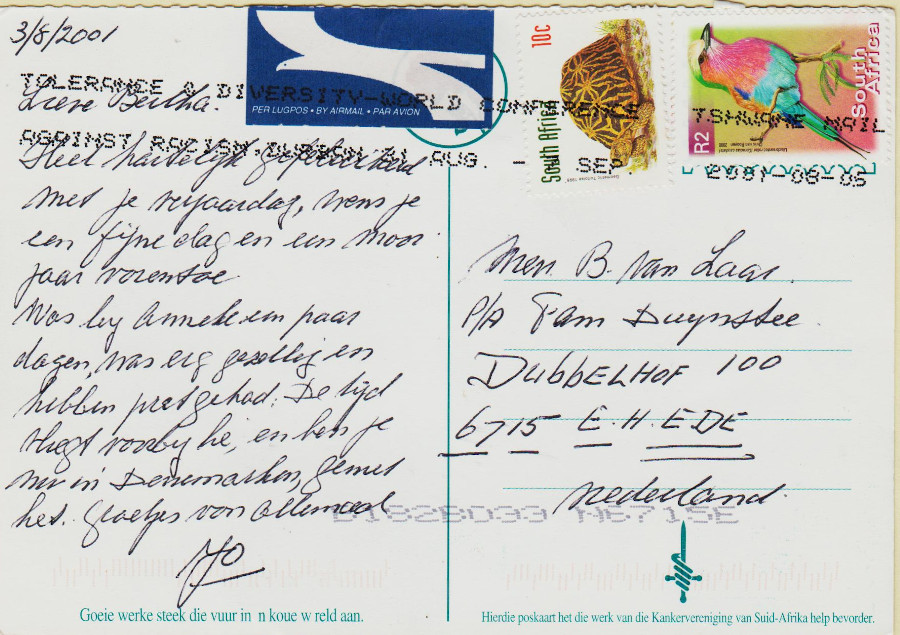 3/8/2001
Lieve Bertha.
Heel hartelijk gefeliciteerd
met je verjaardag, wens je
een fijne dag en een mooi
jaar vorentoe
Was by Anneke een paar
dagen, was erg gezellig en
hebben pret gehad. De tijd
vliegt voorby hé, en ben je
nu in Denemarken, geniet
het. Groetjes van allemaal
Jo
Goeie werke steek die vuur in n koue w reld aan.
PER LUGPOS • BY AIRMAIL • PAR AVION
10c
South Africa
R2
South Africa
TOLERANCE & DIVERSITY-WORLD CONFERENCE
AGAINST RACISM, DURBAN 31 AUG. - SEP
TSHWANE MAIL
2001-08-05
Mev. B. van Laar.
P/A Fam Duynstee.
DUBBELHOF 100
6715 E.H. EDE
Nederland.
Hierdie poskaart het die werk van die Kankervereniging van Suid-Afrika help bevorder.